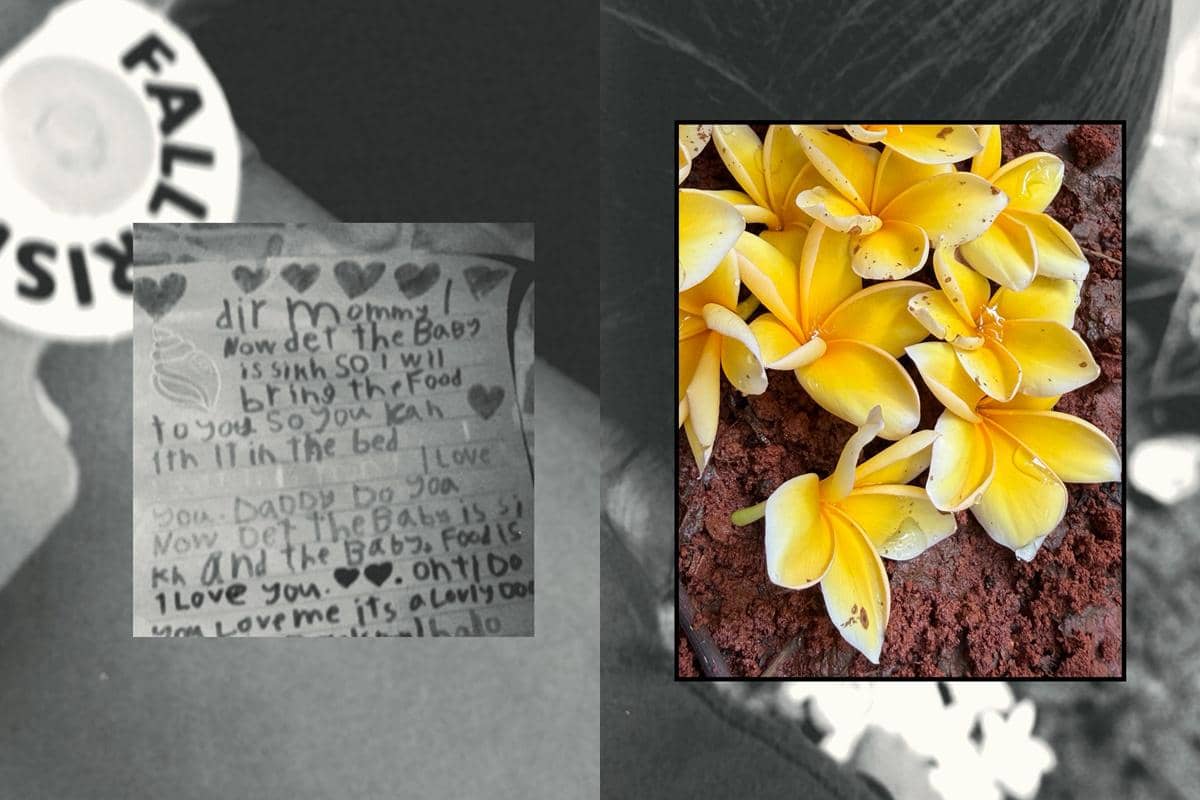 FALL
RIS
dir mommy I
Now det the Baby
is sikh SO I wll
bring the Food
to you so you kah
ith IT ih the bed
I Love
you. DADDY Do You
Now Det The Baby is si
kh And the Baby. Food is
I Love you. ♥♥. Oh I Do
you Love me its a Lovly